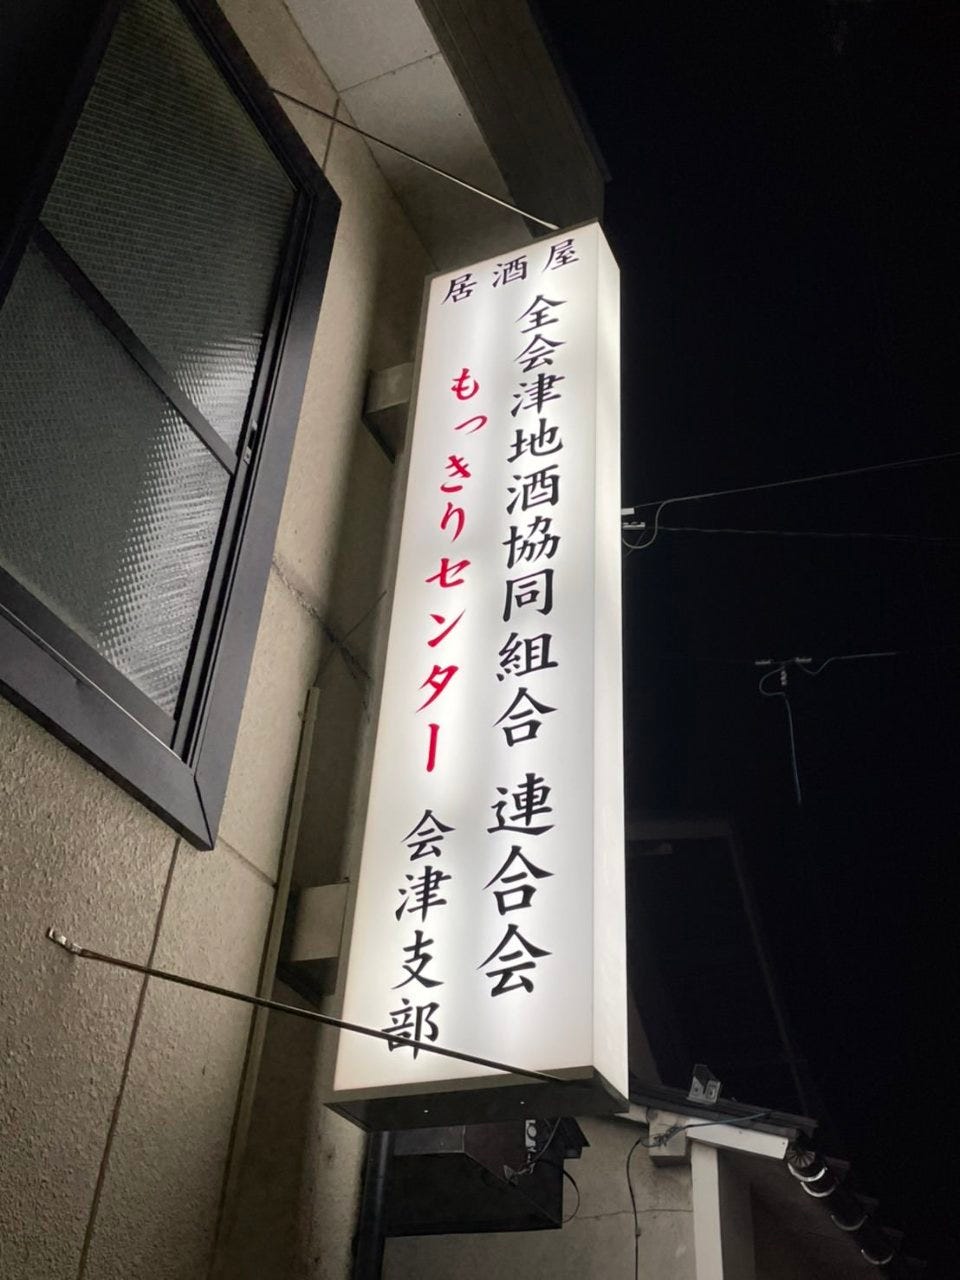 居酒屋
全会津地酒協同組合 連合会
もっきりセンター 会津支部